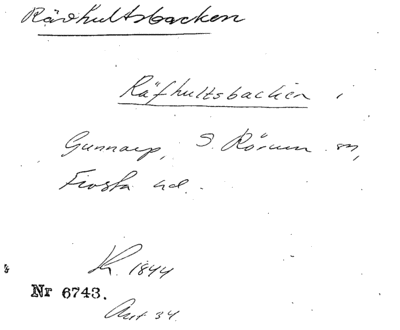 Rävhultsbacken
Räfhultsbacken i
Gunnarp, S. Rörum sn,
Frosta hd.
1844
Nr 6743.
34.